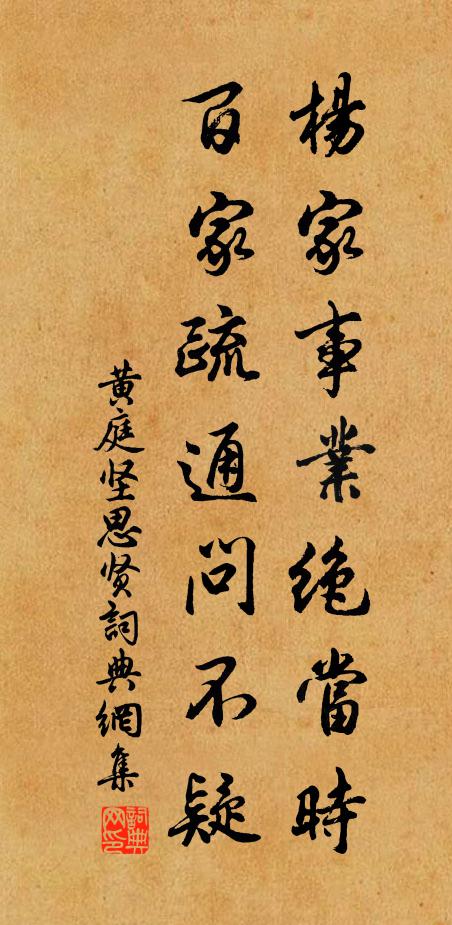 楊家事業絶當時
百家疏通問不疑
黄庭坚思贤詞典網集
詞典網印